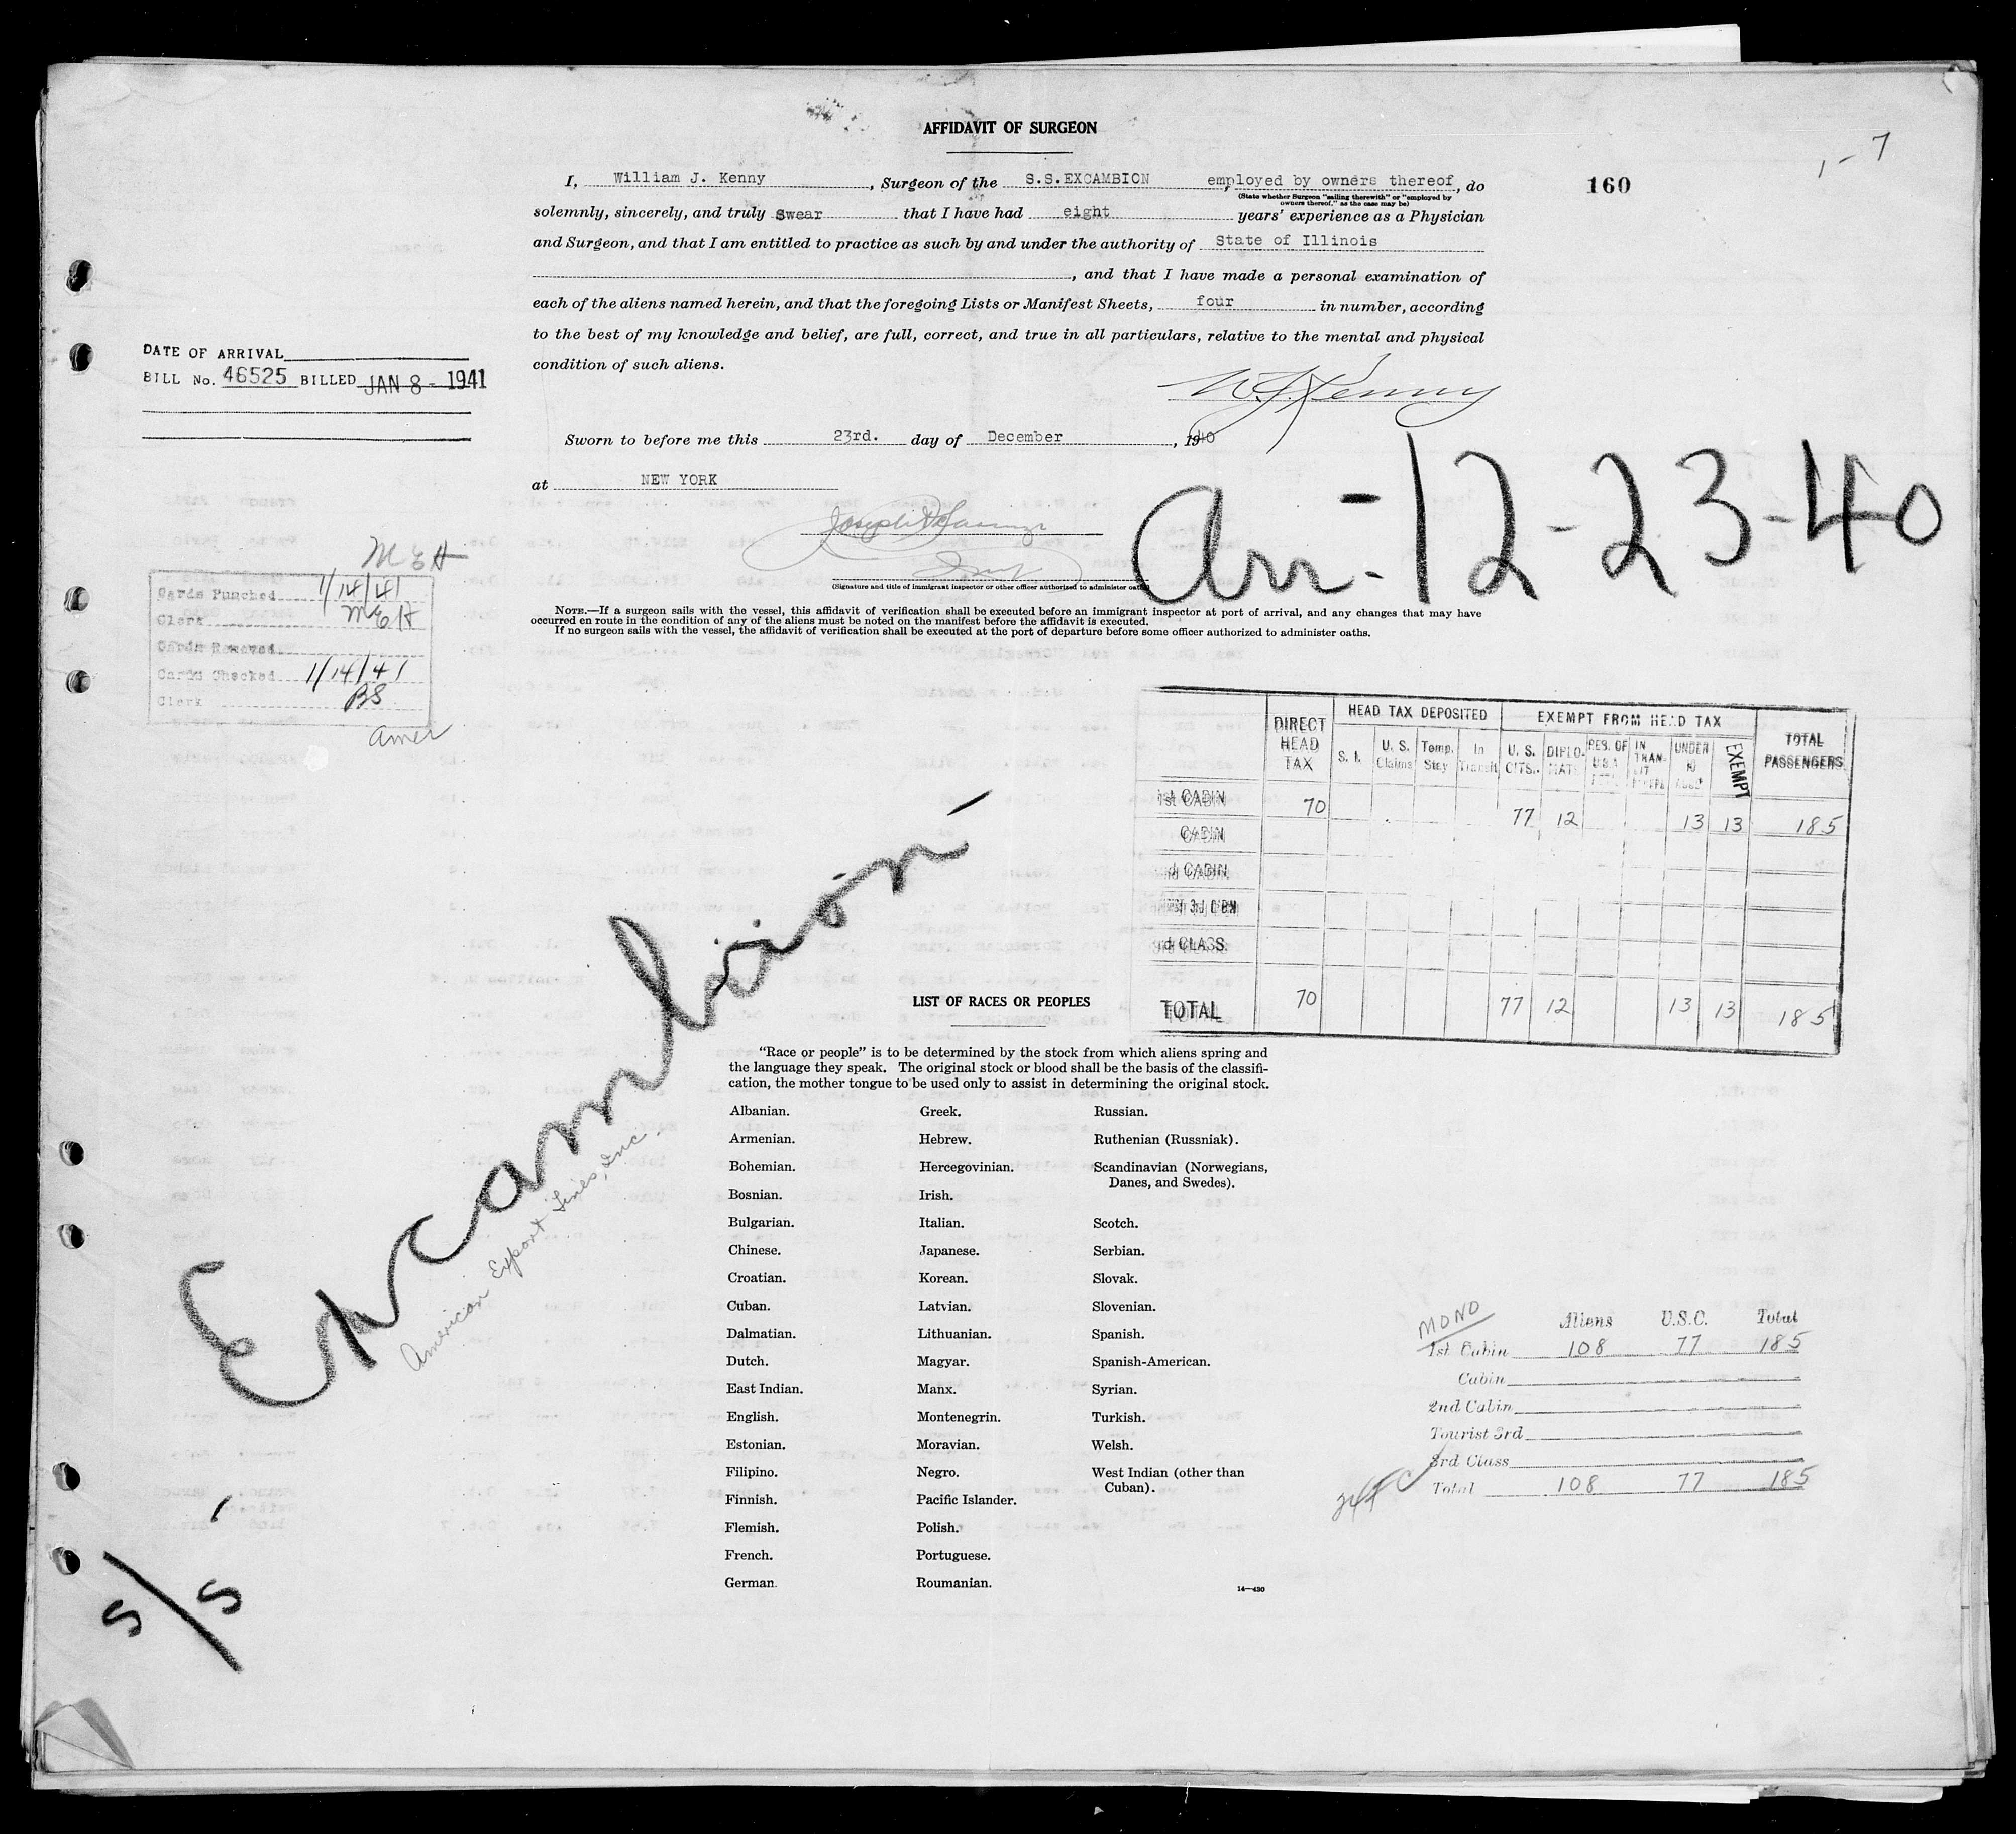 AFFIDAVIT OF SURGEON
1-7
160
I, William J. Kenny, Surgeon of the S.S.EXCAMBION, employed by owners thereof, do
(State whether Surgeon "sailing therewith" or "employed by
owners thereof," as the case may be)
solemnly, sincerely, and truly swear that I have had eight years' experience as a Physician
and Surgeon, and that I am entitled to practice as such by and under the authority of State of Illinois
, and that I have made a personal examination of
each of the aliens named herein, and that the foregoing Lists or Manifest Sheets, four in number, according
to the best of my knowledge and belief, are full, correct, and true in all particulars, relative to the mental and physical
condition of such aliens.
DATE OF ARRIVAL
BILL No. 46525 BILLED JAN 8 - 1941
W. J. Kenny
Sworn to before me this 23rd. day of December, 1940
at NEW YORK
Arr-12-23-40
(Signature and title of immigrant inspector or other officer authorized to administer oaths)
NOTE.—If a surgeon sails with the vessel, this affidavit of verification shall be executed before an immigrant inspector at port of arrival, and any changes that may have
occurred en route in the condition of any of the aliens must be noted on the manifest before the affidavit is executed.
If no surgeon sails with the vessel, the affidavit of verification shall be executed at the port of departure before some officer authorized to administer oaths.
MEH
Cards Punched 1/14/41
Clerk MEH
Cards Removed
Cards Checked 1/14/41
Clerk BS
amer
DIRECT HEAD TAX
HEAD TAX DEPOSITED
EXEMPT FROM HEAD TAX
TOTAL PASSENGERS
S. I. U. S. Claims Temp. Stay In Transit U. S. CITS. DIPLOMATS RES. OF U.S.A. IN TRANSIT UNDER 16 EXEMPT
1st CABIN 70 77 12 13 13 185
CABIN
2nd CABIN
3rd CLASS
TOTAL 70 77 12 13 13 185
S/S Excambion
American Export Lines, Inc.
LIST OF RACES OR PEOPLES
"Race or people" is to be determined by the stock from which aliens spring and
the language they speak. The original stock or blood shall be the basis of the classifi-
cation, the mother tongue to be used only to assist in determining the original stock.
Albanian.
Armenian.
Bohemian.
Bosnian.
Bulgarian.
Chinese.
Croatian.
Cuban.
Dalmatian.
Dutch.
East Indian.
English.
Estonian.
Filipino.
Finnish.
Flemish.
French.
German.
Greek.
Hebrew.
Hercegovinian.
Irish.
Italian.
Japanese.
Korean.
Latvian.
Lithuanian.
Magyar.
Manx.
Montenegrin.
Moravian.
Negro.
Pacific Islander.
Polish.
Portuguese.
Roumanian.
Russian.
Ruthenian (Russniak).
Scandinavian (Norwegians,
Danes, and Swedes).
Scotch.
Serbian.
Slovak.
Slovenian.
Spanish.
Spanish-American.
Syrian.
Turkish.
Welsh.
West Indian (other than
Cuban).
14—430
MONO
Aliens U.S.C. Total
1st Cabin 108 77 185
Cabin
2nd Cabin
Tourist 3rd
3rd Class
Total 108 77 185